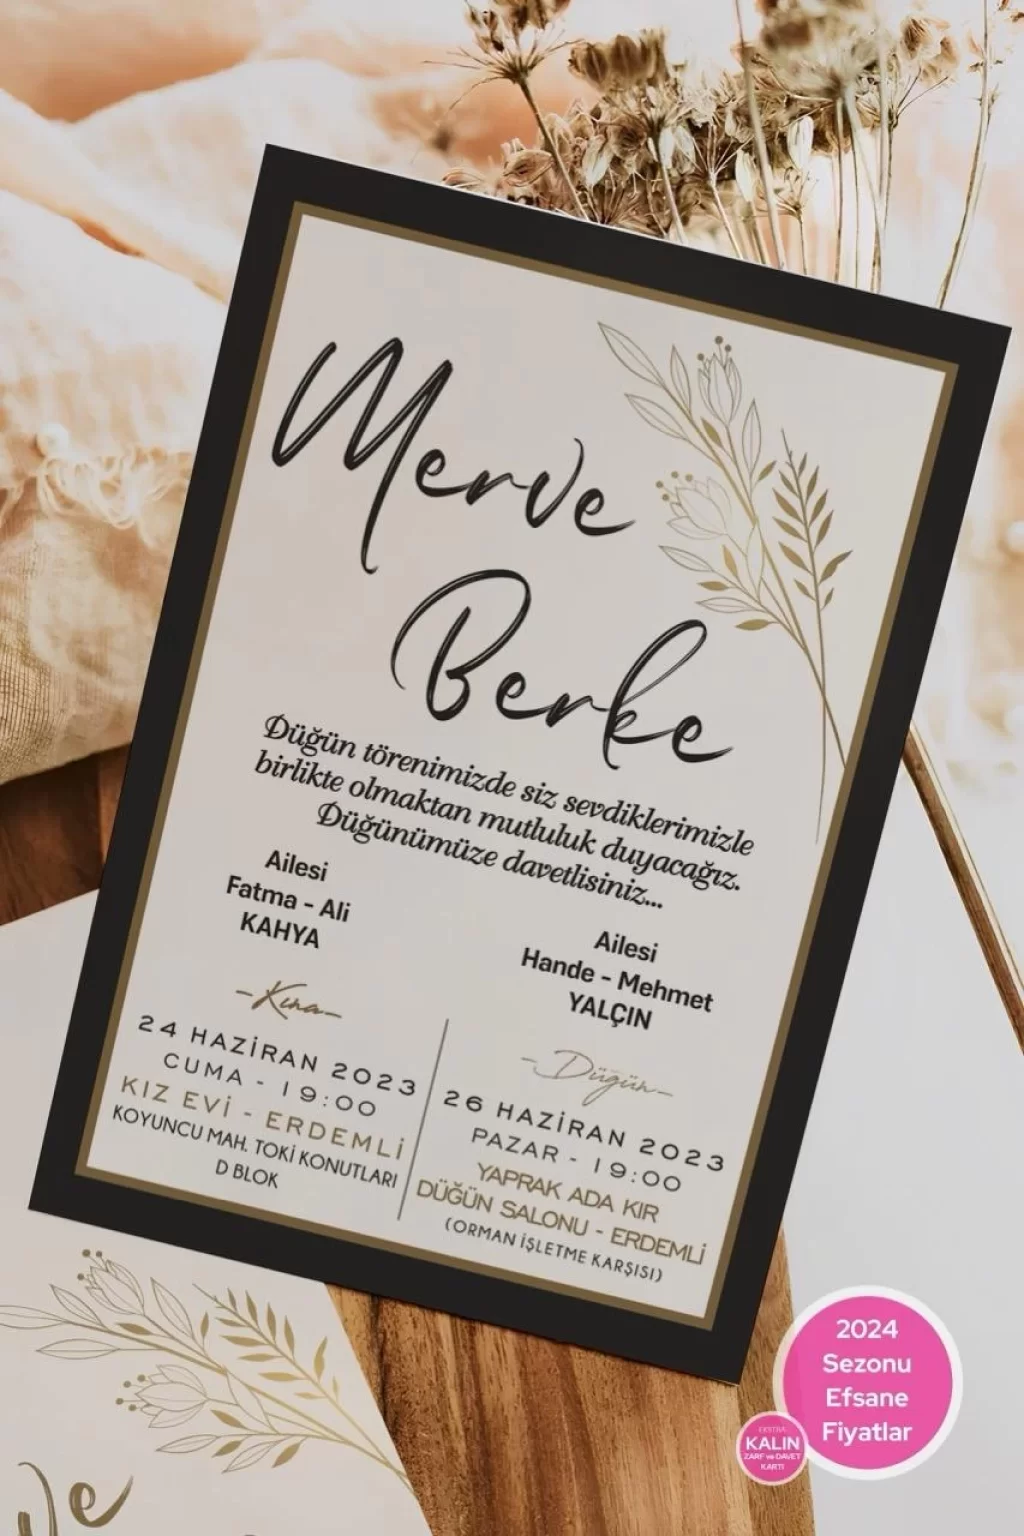 Merve
Berke
Düğün törenimizde siz sevdiklerimizle
birlikte olmaktan mutluluk duyacağız.
Düğünümüze davetlisiniz...
Ailesi
Fatma - Ali
KAHYA
Ailesi
Hande - Mehmet
YALÇIN
-Kına-
24 HAZİRAN 2023
CUMA - 19:00
KIZ EVİ - ERDEMLİ
KOYUNCU MAH. TOKİ KONUTLARI
D BLOK
-Düğün-
26 HAZİRAN 2023
PAZAR - 19:00
YAPRAK ADA KIR
DÜĞÜN SALONU - ERDEMLİ
(ORMAN İŞLETME KARŞISI)
2024
Sezonu
Efsane
Fiyatlar
EKSTRA
KALIN
ZARF ve DAVET
KARTI
ve